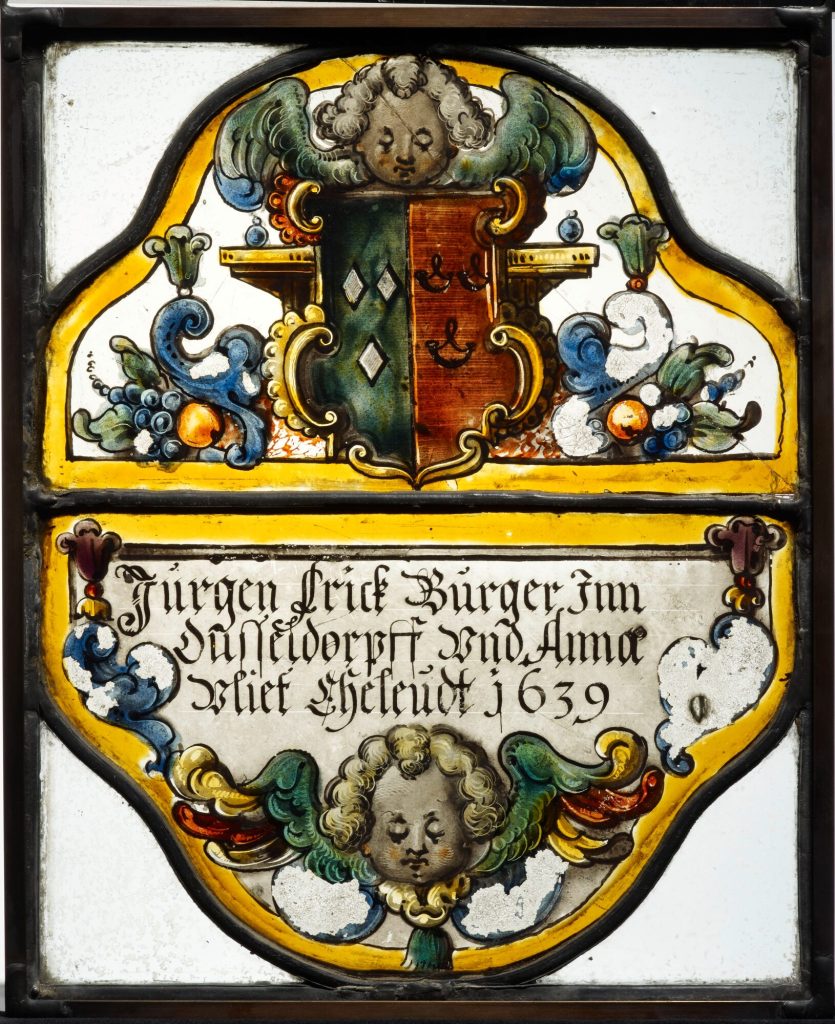 Jürgen Crick Bürger Inn
Düsseldorpff Vnd Anna
Vliet Eheleudt j639